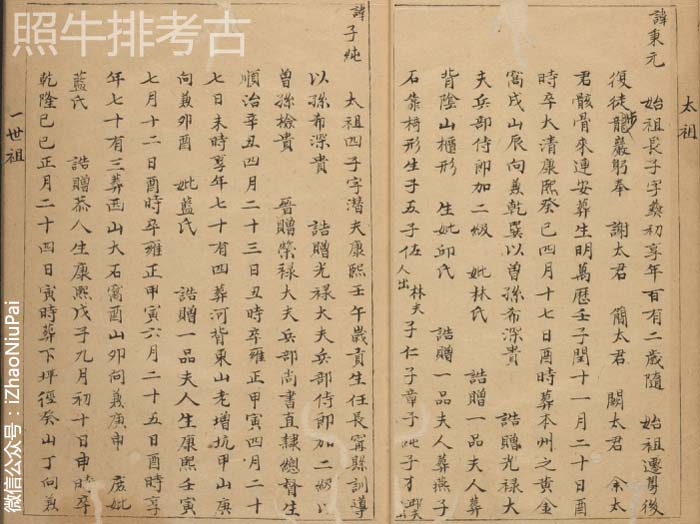 照牛排考古
微信公众号：iZhaoNiuPai
太祖
諱秉元　始祖長子字義初享年百有二歲隨　始祖遷學後
復徒龍巖躬奉　謝太君　簡太君　闕太君　余太
步
君骸骨來連安葬生明萬歷壬子閏十一月二十日酉
時卒大清康熙癸巳四月十七日酉時葬本州之黃金
窩戌山辰向兼乾巽以曾孫希深貴　誥贈光禄大
夫兵部侍郎加二級　妣林氏　誥贈一品夫人葬
背陰山櫃形　生妣邱氏　誥贈一品夫人葬燕子
石靠椅形生子五子佐 人出 林夫 子仁子章子純子才
諱子純　太祖四子字潛夫康熙壬午歲貢生任長寧縣訓導
以孫希深貴　誥贈光禄大夫兵部侍郎加二級以
曾孫檢貴　晉贈榮禄大夫兵部尚書直隸總督生
順治辛丑四月二十三日丑時卒雍正甲寅四月二十
七日未時享年七十有四葬河背東山老增坑甲山庚
向兼卯酉　妣藍氏　誥贈一品夫人生康熙壬寅
七月十二日酉時卒雍正甲寅六月二十五日酉時享
年七十有三葬西山大石窩酉山卯向兼庚申　庶妣
藍氏　誥贈恭人生康熙戊子九月初十日申時卒
乾隆己巳正月二十四日寅時葬下坪徑癸山丁向兼
一世祖